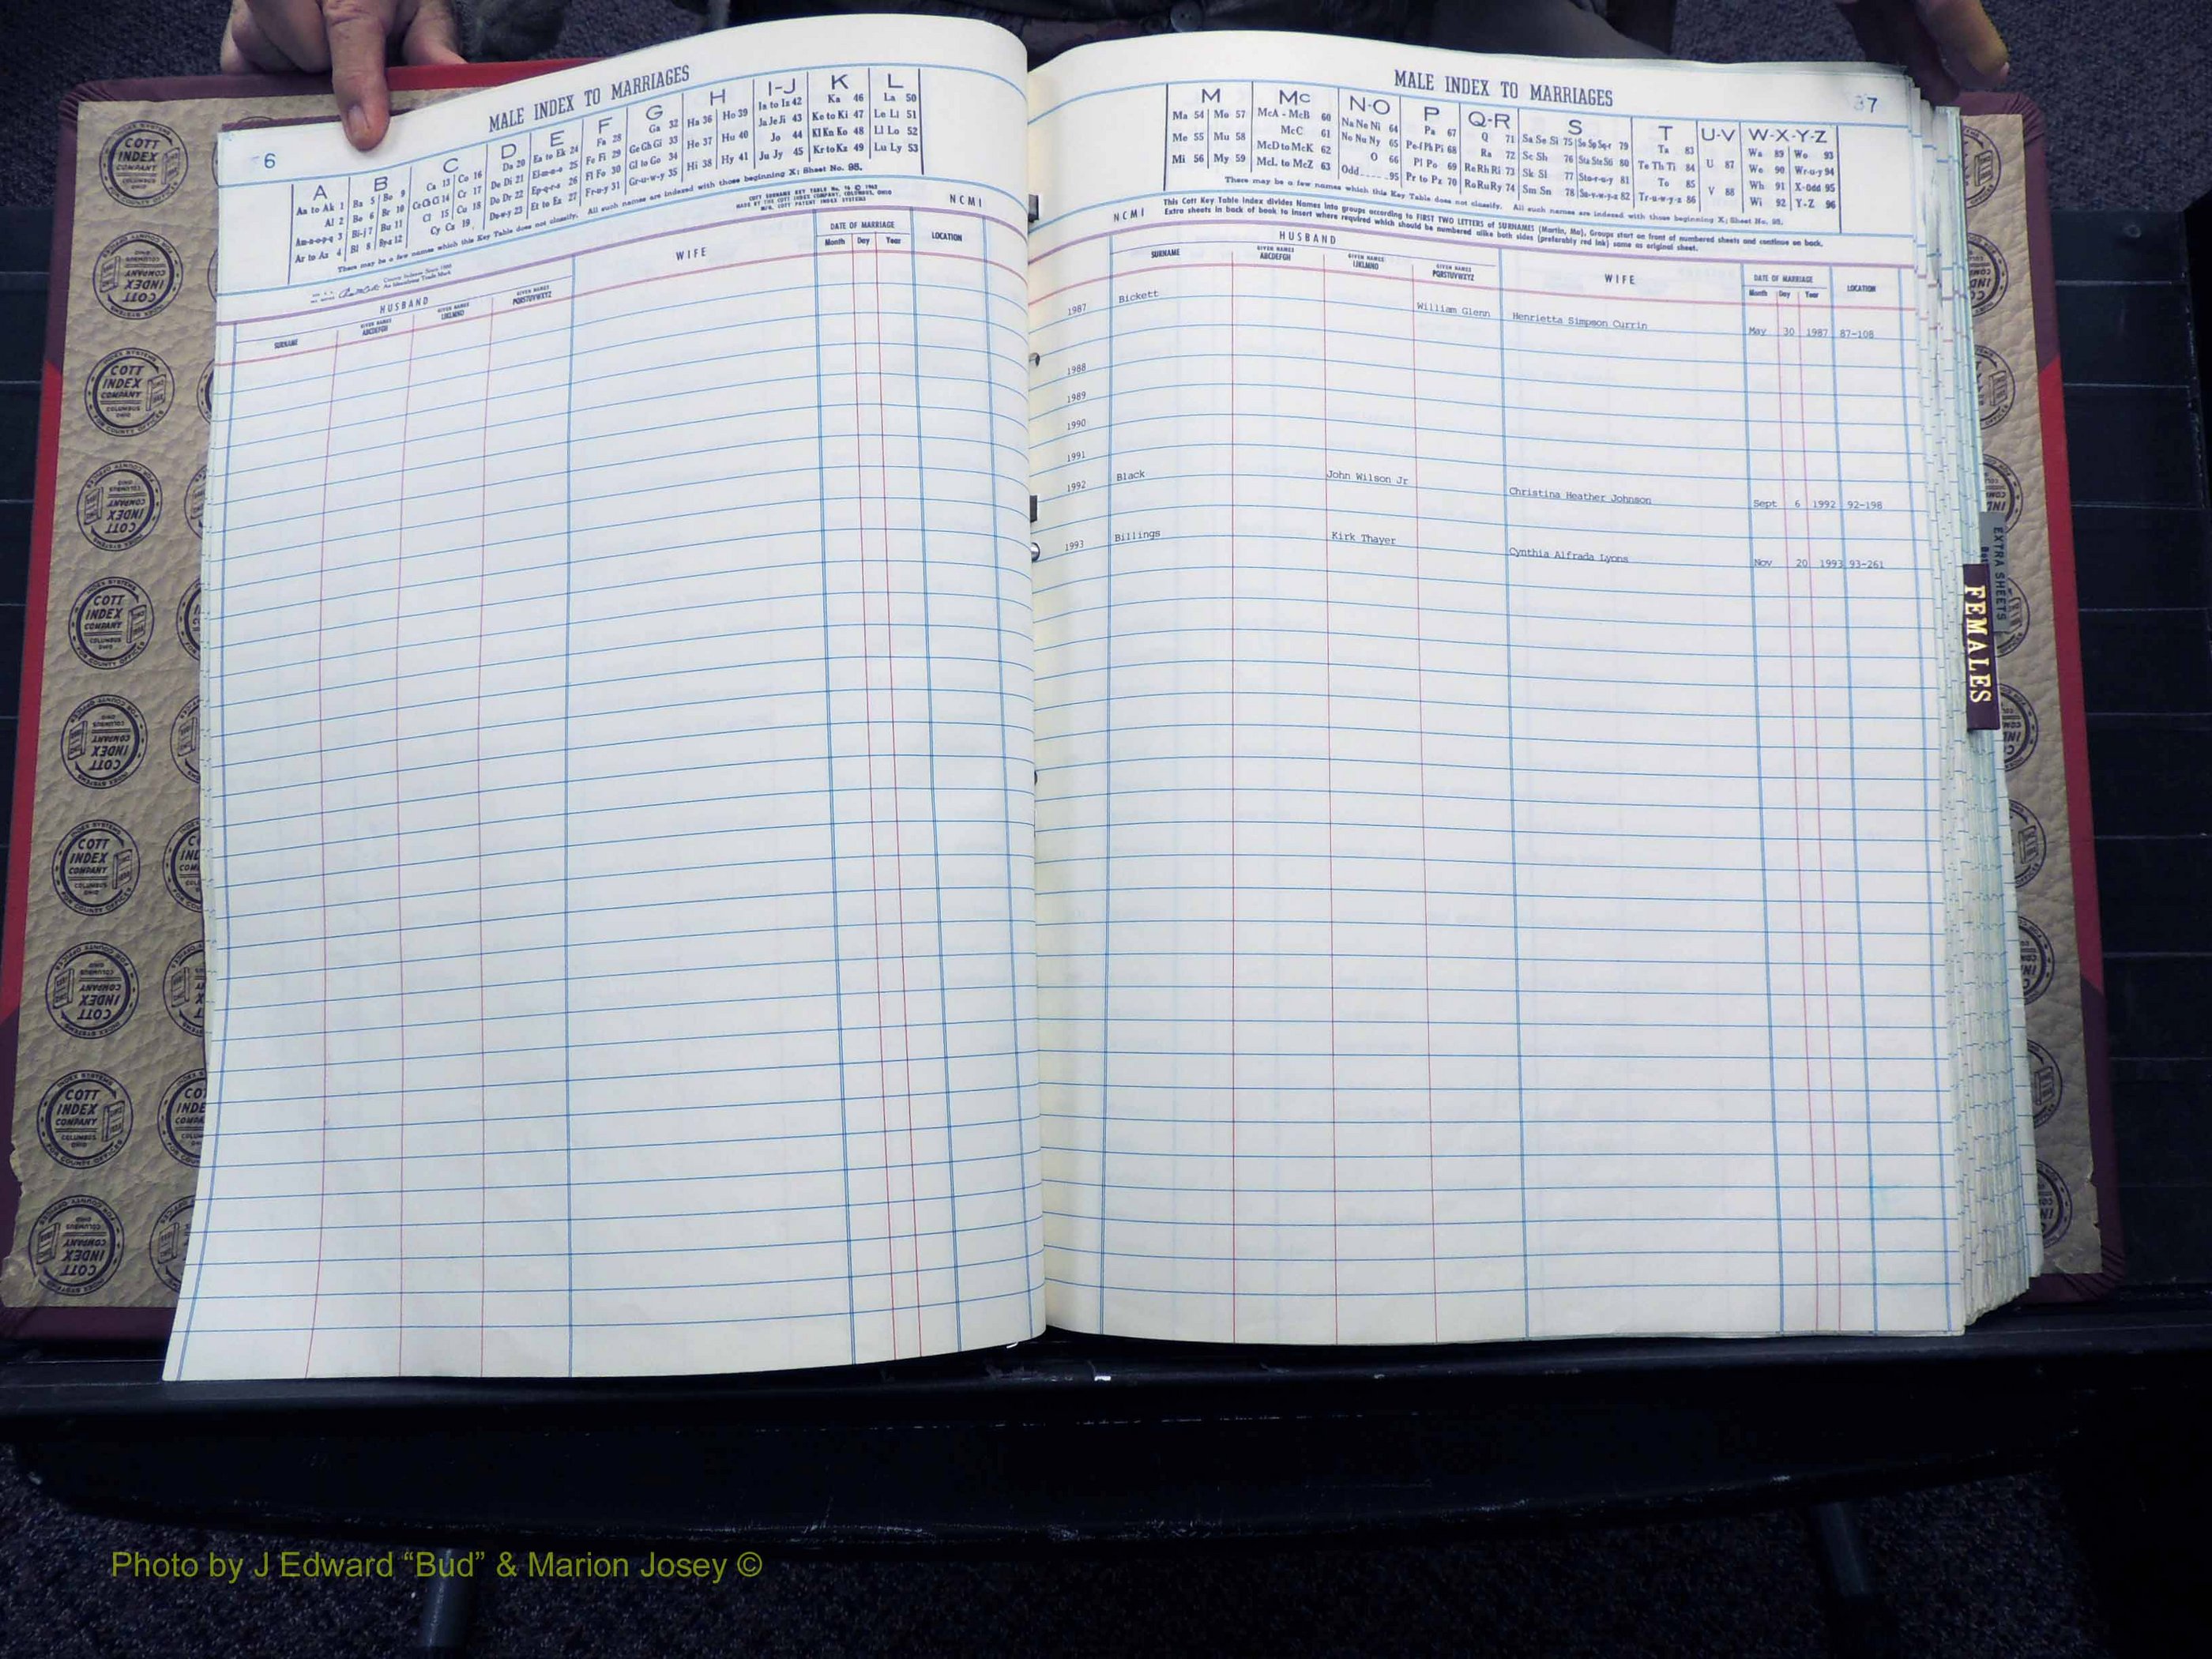 6
MALE INDEX TO MARRIAGES
A
Aa to Ak 1
Al 2
Am-n-o-p-q 3
Ar to Az 4
B
Ba 5
Be 6
Bi-j 7
Bl 8
Bo 9
Br 10
Bu 11
By-z 12
C
Ca 13
Ce Ch Ci 14
Cl 15
Co 16
Cr 17
Cu 18
Cy Cz 19
D
Da 20
De Di 21
Do Dr 22
Du-w-y 23
E
Ea to Ek 24
El-m-n-o 25
Ep-q-r-s 26
Et to Ez 27
F
Fa 28
Fe Fi 29
Fl Fo 30
Fr-u-y 31
G
Ga 32
Ge Gh Gi 33
Gl to Go 34
Gr-u-w-y 35
H
Ha 36
He 37
Hi 38
Ho 39
Hu 40
Hy 41
I-J
Ia to Iz 42
Ja Je Ji 43
Jo 44
Ju Jy 45
K
Ka 46
Ke to Ki 47
Kl Kn Ko 48
Kr to Kz 49
L
La 50
Le Li 51
Ll Lo 52
Lu Ly 53
There may be a few names which this Key Table does not classify. All such names are indexed with those beginning X; Sheet No. 95.
NCMI
HUSBAND
SURNAME
GIVEN NAMES ABCDEFGH
GIVEN NAMES IJKLMNO
GIVEN NAMES PQRSTUVWXYZ
WIFE
DATE OF MARRIAGE
Month Day Year
LOCATION
MALE INDEX TO MARRIAGES
37
M
Ma 54
Me 55
Mi 56
Mo 57
Mu 58
My 59
Mc
McA - McB 60
McC 61
McD to McK 62
McL to McZ 63
N-O
Na Ne Ni 64
No Nu Ny 65
O 66
Odd 95
P
Pa 67
Pe-f Ph Pi 68
Pl Po 69
Pr to Pz 70
Q-R
Q 71
Ra 72
Re Rh Ri 73
Ro Ru Ry 74
S
Sa Se Si 75
Sc Sh 76
Sk Sl 77
Sm Sn 78
So Sp Sq-r 79
Sta Ste Sti 80
Sto-r-u-y 81
Su-v-w-y-z 82
T
Ta 83
Te Th Ti 84
To 85
Tr-u-w-y-z 86
U-V
U 87
V 88
W-X-Y-Z
Wa 89
We 90
Wh 91
Wi 92
Wo 93
Wr-u-y 94
X-Odd 95
Y-Z 96
There may be a few names which this Key Table does not classify. All such names are indexed with those beginning X; Sheet No. 95.
NCMI
This Cott Key Table Index divides Names into groups according to FIRST TWO LETTERS of SURNAMES (Martin, Ma), Groups start on front of numbered sheets and continue on back.
Extra sheets in back of book to insert where required which should be numbered alike both sides (preferably red ink) same as original sheet.
HUSBAND
SURNAME
GIVEN NAMES ABCDEFGH
GIVEN NAMES IJKLMNO
GIVEN NAMES PQRSTUVWXYZ
WIFE
DATE OF MARRIAGE
Month Day Year
LOCATION
1987 Bickett William Glenn Henrietta Simpson Currin May 30 1987 87-108
1988
1989
1990
1991
1992 Black John Wilson Jr Christina Heather Johnson Sept 6 1992 92-198
1993 Billings Kirk Thayer Cynthia Alfrada Lyons Nov 20 1993 93-261
EXTRA SHEETS
FEMALES
COTT INDEX COMPANY
COLUMBUS OHIO
INDEX SYSTEMS
FOR COUNTY OFFICES
Photo by J Edward “Bud” & Marion Josey ©